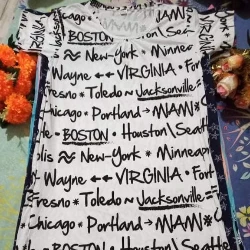 VIRGINIA
Chicago • MIAMI
BOSTON \ Seatt
≈ New-York * Minnea
Wayne ←← VIRGINIA • Fort
Fresno * Toledo ~ Jacksonville
Chicago • Portland → MIAMI *
BOSTON • Houston \ Seatt
olis ≈ New-York * Minneap
Wayne ←← VIRGINIA • Fort
Fresno * Toledo ~ Jacksonville =
Chicago • Portland → MIAMI *
BOSTON • Houston \ Seatt